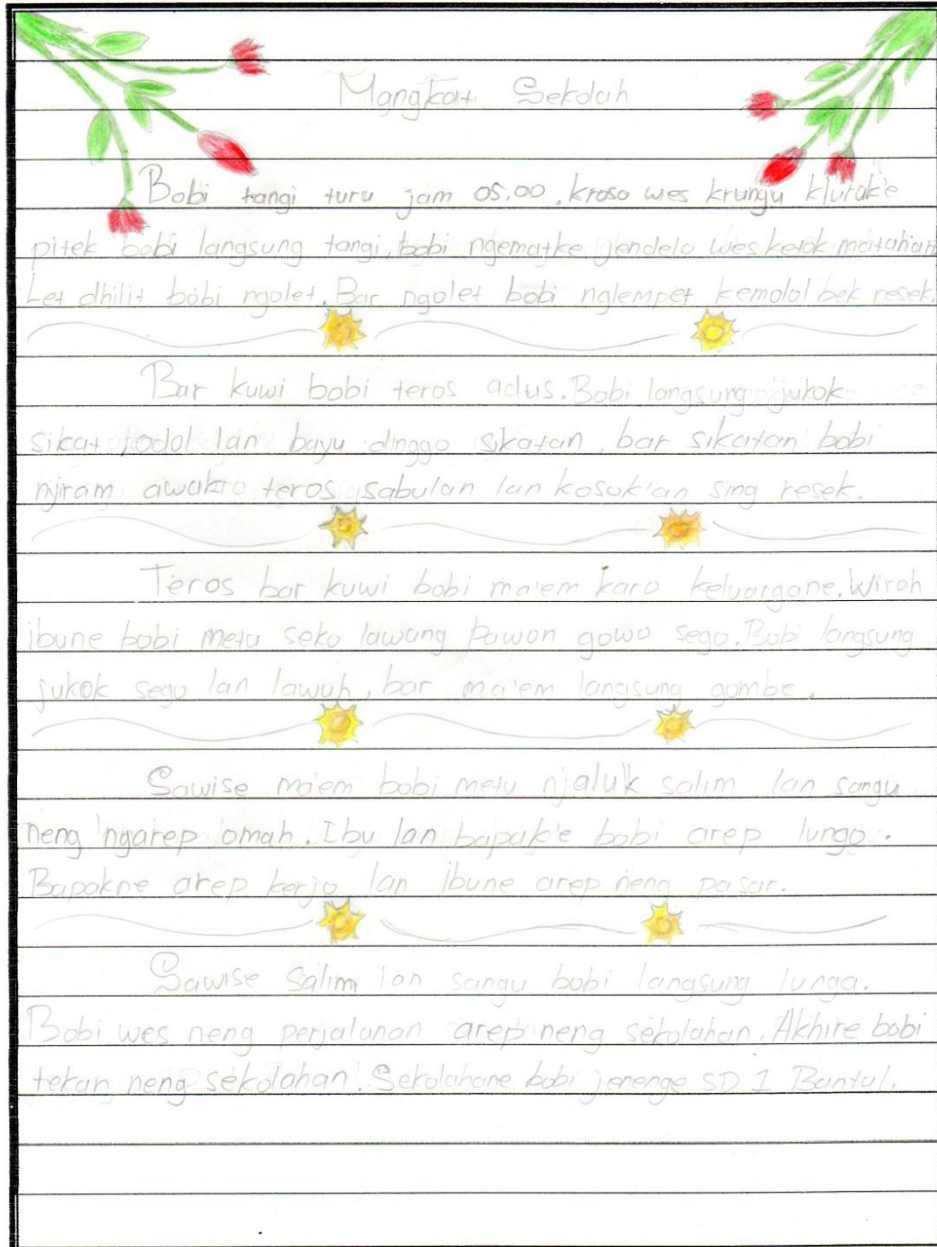 Mangkat Sekolah
Bobi tangi turu jam 05.00. kroso wes krungu klurak'e
pitek bobi langsung tangi, bobi ngematke jendelo wes ketok matahari
Let dhilit bobi ngolet. Bar ngolet bobi nglempet kemolol bek resek.
Bar kuwi bobi teros adus. Bobi langsung njukok
sikat lodol lan bayu dinggo sikatan, bar sikatan bobi
njiram awakro teros sabulan lan kosuk'an sing resek.
Teros bar kuwi bobi ma'em karo keluargane. Wiroh
ibune bobi metu seko lawang Pawon gowo sego. Bobi langsung
jukok sego lan lawuh, bar ma'em langsung gombe.
Sawise ma'em bobi metu njaluk salim lan sangu
neng ngarep omah. Ibu lan bapak'e bobi arep lungo.
Bapakne arep kerjo lan ibune arep neng pasar.
Sawise Salim lan sangu bobi langsung lunga.
Bobi wes neng perjalanan arep neng sekolahan. Akhire bobi
tekan neng sekolahan. Sekolahane bobi jenenge SD 1 Bantul.